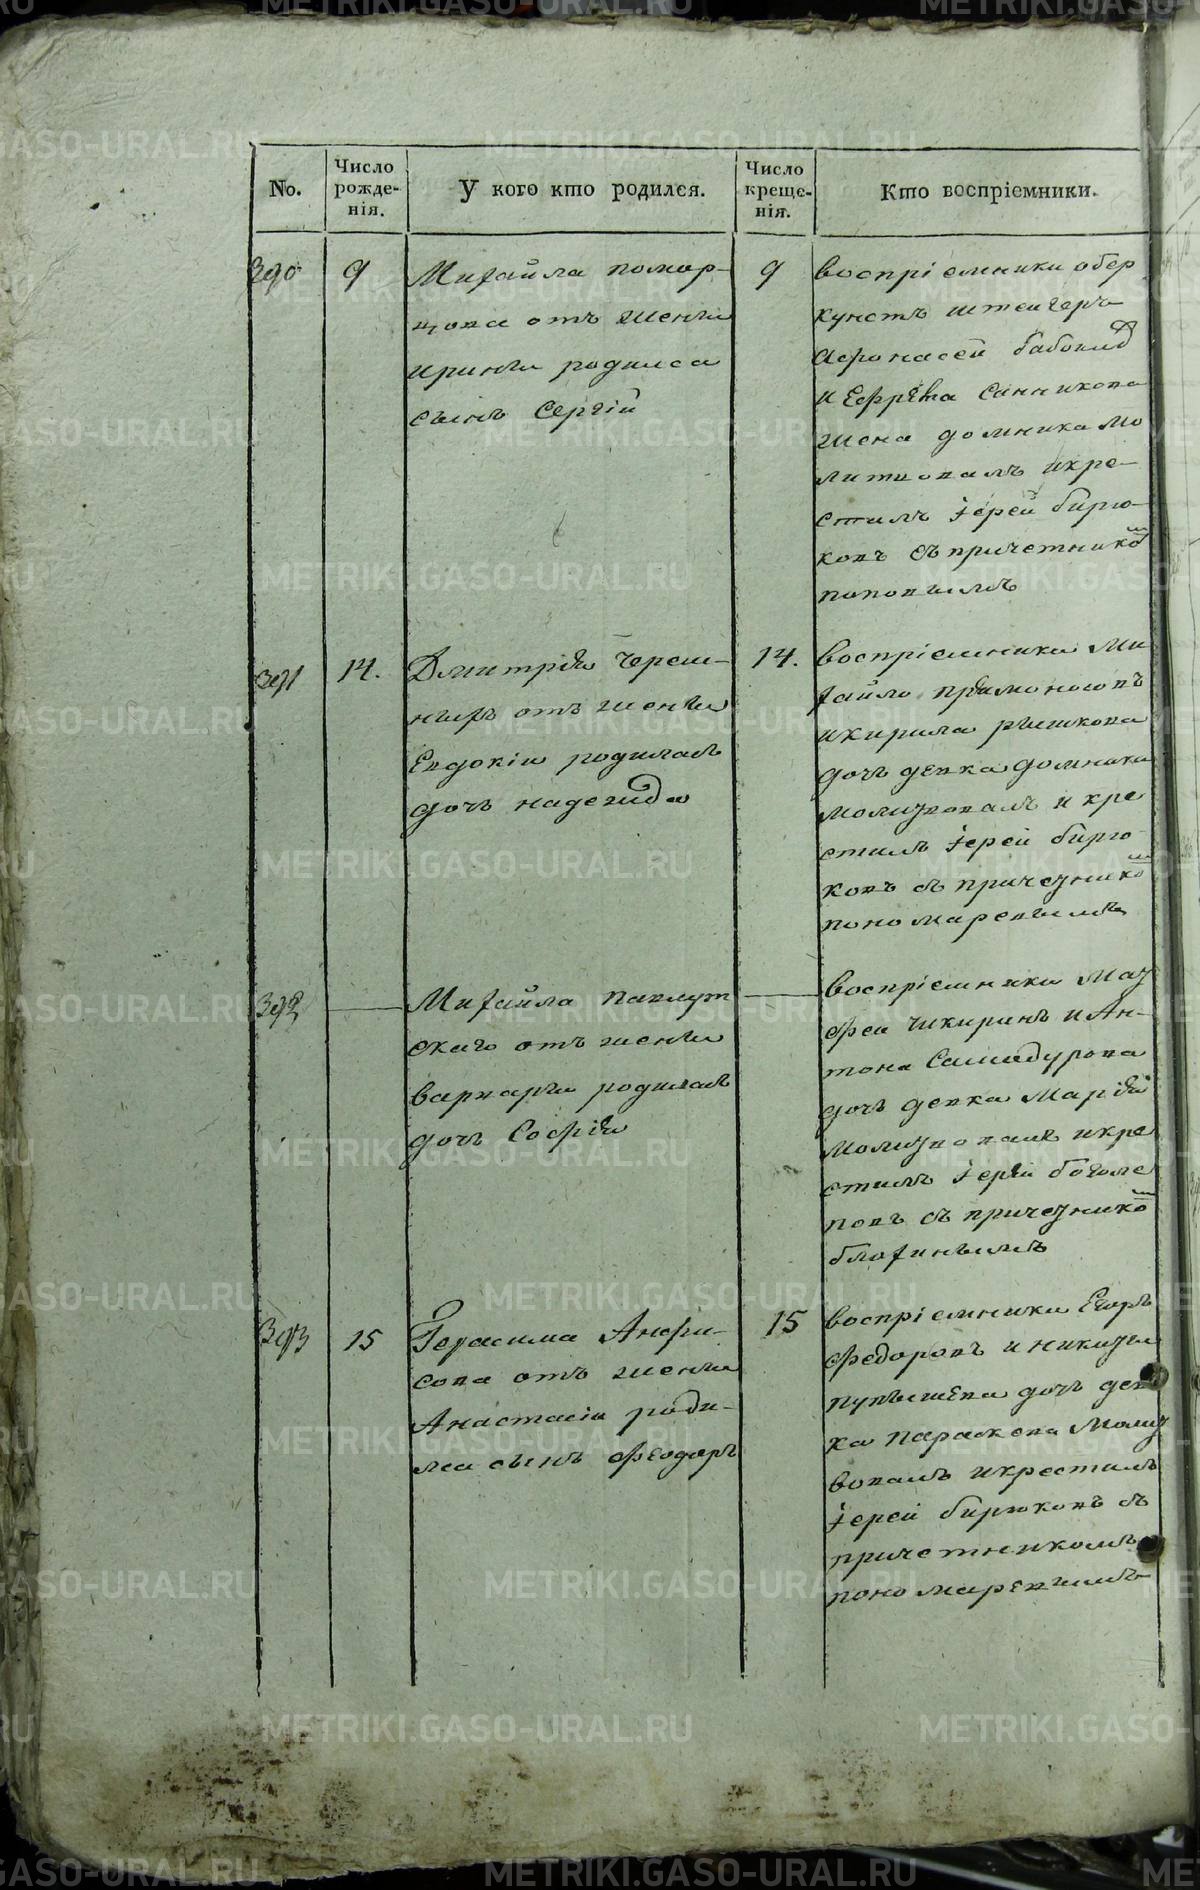 No.
Число рожде-нія.
У кого кто родился.
Число креще-нія.
Кто воспріемники.
390
9
Михайла помор-
цова отъ жены
ирины родился
сынъ Сергій
9
воспріемники обер
кунстъ штейгеръ
Афонасей бабоши
и Ефрема Санникова
жена домника мо
литвовалъ и кре-
стилъ Іерей бирю-
ковъ съ причетнико
поповымъ
391
14.
Дмитрія череш-
ныхъ отъ жены
Евдокіи родилась
дочь надежда
14.
воспріемники Ми
хайло прямоносовъ
и кирила рышкова
дочь девка домника
молитвовалъ и кре
стилъ Іерей бирю
ковъ съ причетнико
пономаревымъ
392
Михайла павлут
скаго отъ жены
варвары родилась
дочь Софія
воспріемники Мат
фей чикиринъ и Ан-
тона Самодурова
дочь девка Марія
молитвовалъ и кре
стилъ Іерей боголе
повъ съ причетнико
блохинымъ
393
15
Герасима Анфи-
сова отъ жены
Анастасіи роди-
лся сынъ Феодоръ
15
воспріемники Егоръ
федоровъ и никиты
пупышева дочь дев
ка параскева молит
вовалъ и крестилъ
Іерей бирюковъ съ
причетникомъ
пономаревымъ
METRIKI.GASO-URAL.RU